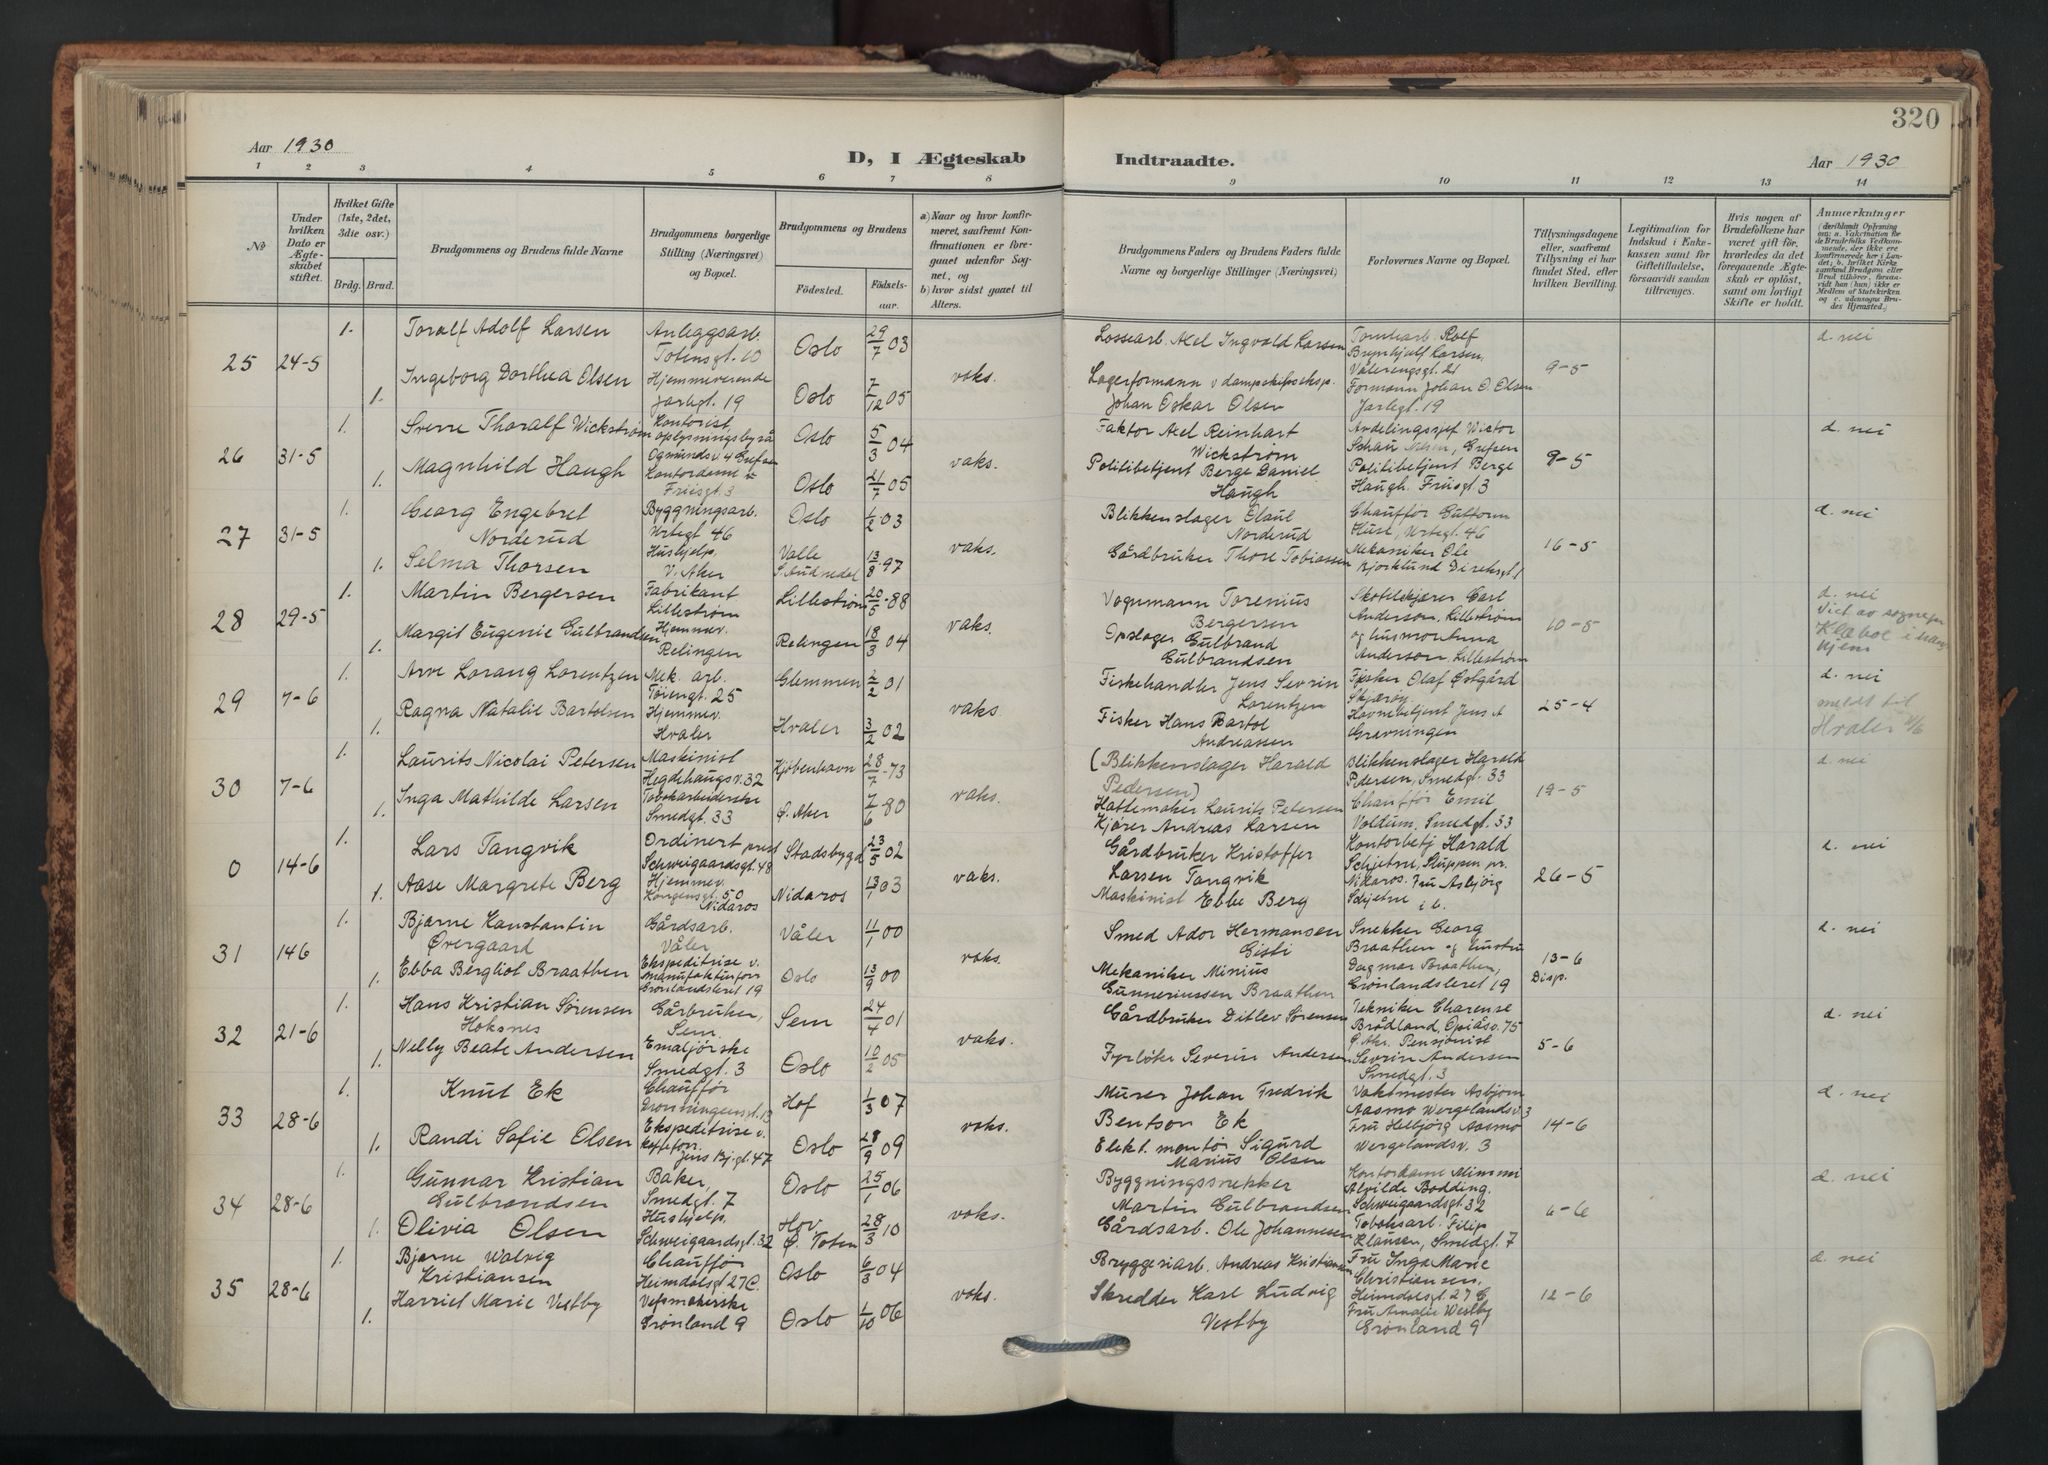 320
Aar 1930
D, I Ægteskab
Indtraadte.
Aar 1930
1 2 3 4 5 6 7 8 9 10 11 12 13 14
No
Under hvilken Dato er Ægteskabet stiftet.
Hvilket Gifte (1ste, 2det, 3die osv.)
Brdg. Brud.
Brudgommens og Brudens fulde Navne
Brudgommens borgerlige Stilling (Næringsvei) og Bopæl.
Brudgommens og Brudens
Fødested.
Fødselsaar.
a) Naar og hvor konfirmeret, saafremt Konfirmationen er foregaaet udenfor Sognet, og
b) hvor sidst gaaet til Alters.
Brudgommens Faders og Brudens Faders fulde Navne og borgerlige Stillinger (Næringsvei)
Forlovernes Navne og Bopæl.
Tillysningsdagene eller, saafremt Tillysning ei har fundet Sted, efter hvilken Bevilling.
Legitimation for Indskud i Enkekassen samt for Giftetilladelse, forsaavidt saadan tiltrænges.
Hvis nogen af Brudefolkene har været gift før, hvorledes da det foregaaende Ægteskab er opløst, samt om lovligt Skifte er holdt.
Anmærkninger
(deriblandt Oplysning om: a. Vakcination for de Brudefolks Vedkommende, der ikke ere konfirmerede her i Landet; b. hvilket Kirkesamfund Brudgom eller Brud tilhører, forsaavidt han (hun) ikke er Medlem af Statskirken og c. udensogns Brudes Hjemsted.)
25 24-5
1. Toralf Adolf Larsen Anleggsarb. Totensgt. 10 Oslo 29/7 03
1. Ingeborg Dorthea Olsen Hjemmeværende Jarlegt. 19 Oslo 7/12 05
vaks.
Lossearb. Axel Ingvald Larsen
Lagerformann v dampskipseksp. Johan Oskar Olsen
Tomtearb. Rolf Brynhjulf Larsen, Vålerengsgt. 21
Formann Johan O. Olsen Jarlegt. 19
9-5
d. nei
26 31-5
1. Sverre Thoralf Wickstrøm Kontorist, oplysningsbyrå Ogmundsv. 4 Grefsen Oslo 5/3 04
1. Magnhild Haugh Kontordame Friisgt. 3 Oslo 21/7 05
vaks.
Faktor Axel Reinhart Wickstrøm
Politibetjent Berge Daniel Haugh
Avdelingssjef Victor Schau, Grefsen
Politibetjent Berge Haugh. Friisgt. 3
9-5
d. nei
27 31-5
1. Georg Engebret Norderud Byggningsarb. Urtegt 46 Oslo 1/2 03
1. Selma Thorsen Hushjelp, V. Aker Valle S. Audnedal 13/8 97
vaks.
Blikkenslager Olaul Norderud
Gårdbruker Thore Tobiassen
Chauffør Guttorm Huse, Urtegt. 46
Mekaniker Ole Bjørklund
16-5
d. nei
28 29-5
1. Martin Bergersen Fabrikant Lillestrøm Lillestrøm 20/5 88
1. Margit Eugenie Gulbrandsen Hjemmev. Relingen Relingen 18/3 04
vaks.
Vognmann Torenius Bergersen
Opslager Gulbrand Gulbrandsen
Carl Anderson, Lillestrøm og husmor Anna Anderson, Lillestrøm
10-5
d. nei
Viet av sognepr. Klæboe i hans hjem
29 7-6
1. Arve Lorang Lorentzen Mek. arb. Tøiengt. 25 Glemmen 2/2 01
1. Ragna Natalie Bartolsen Hjemmev. Hvaler Hvaler 3/2 02
vaks.
Fiskehandler Jens Severin Lorentzen
Fisker Hans Bartol Andreassen
Fisker Olaf Østgård Skjærøy
Havnebetjent Jens A Gravningen
25-4
d. nei
meldt til Hvaler
30 7-6
1. Laurits Nicolai Petersen Maskinist Hegdehaugsv. 32 Kjøbenhavn 28/7 73
1. Inga Mathilde Larsen Tobakarbeiderske Smedgt. 33 Ø. Aker 7/6 80
vaks.
(Blikkenslager Harald Pedersen)
Hattemaker Laurits Petersen
Kjører Andreas Larsen
Blikkenslager Harald Pedersen, Smedgt. 33
Chauffør Emil Voldum, Smedgt. 33
19-5
d. nei
0 14-6
1. Lars Tangvik Ordinert prest Schweigaardsgt. 48 Stadsbygd 23/5 02
1. Aase Margrete Berg Hjemmev. Kongensgt. 50 Nidaros Nidaros 13/1 03
vaks.
Gårdbruker Kristoffer Larsen Tangvik
Maskinist Ebbe Berg
Kontorbetj Harald Schjetne, Sluppen pr. Nidaros. Fru Asbjørg Schjetne i b.
26-5
d. nei
31 14 6
1. Bjarne Konstantin Øvergaard Gårdsarb. Våler Våler 11/1 00
1. Ebba Bergliot Braathen Ekspeditrise v. manufakturforr. Grønlandsleret 19 Oslo 13/9 00
vaks.
Smed Ador Hermansen
Mekaniker Minius Gunneriussen Braathen
Snekker Georg Braathen og hustru Dagmar Braathen, Grønlandsleret 19
13-6 Disp.
d. nei
32 21-6
1. Hans Kristian Sørensen Hoksnes Gårbruker, Sem Sem 24/4 01
1. Nelly Beate Andersen Emaljørske Smedgt. 3 Oslo 10/2 05
vaks.
Gårdbruker Ditlev Sørensen
Fyrbøter Severin Andersen
Tekniker Charense Brådland, 75 Ø. Akr. Pensjonist Sevrin Andersen Smedgt. 3
5-6
d. nei
33 28-6
1. Knut Ek Chauffør Dronningensgt. 13 Hof 1/3 07
1. Randi Sofie Olsen Ekspeditrise v. kaffeforr. Jens Bj. gt. 47 Oslo 28/9 09
vaks.
Murer Johan Fredrik Bentson Ek
Elekt. montør Sigurd Marius Olsen
Vaktmester Asbjørn Aasmo Wergelandsv. 3
Fru Helbjørg Aasmo Wergelandsv. 3
14-6
d. nei
34 28-6
1. Gunnar Kristian Gulbrandsen Baker, Smedgt. 7 Oslo 25/1 06
1. Olivia Olsen Hushjelp, Schweigaardsgt. 32 Hov Ø. Toten 28/3 10
vaks.
Byggningssnekker Martin Gulbrandsen
Gårdsarb. Ole Johannesen
Kontordame Mimmi Alvilde Bodding, Schweigaardsgt. 32
Tobaksarb. Filip Klausen, Smedgt. 7
6-6
d. nei
35 28-6
1. Bjarne Walvig Kristiansen Chauffør Heimdalsgt 27 C Oslo 6/3 04
1. Harriet Marie Vestby Grønland 9 Oslo 1/10 06
vaks.
Bryggeriarb. Andreas Kristiansen
Skredder Karl Ludvig Vestby
Fru Inga Marie Christiansen, Heimdalsgt 27 C
Fru Amalie Westby Grønland 9
12-6
d. nei